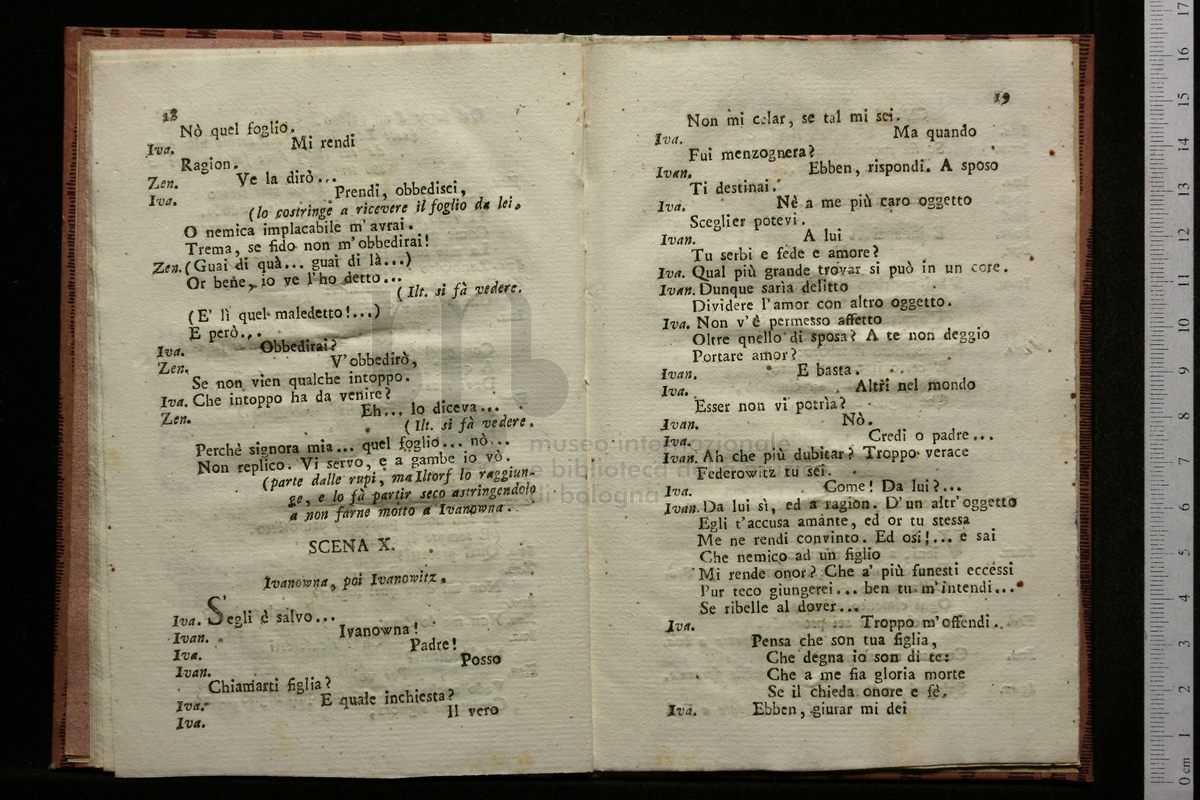 18
Nò quel foglio.
Iva. Mi rendi
Ragion.
Zen. Ve la dirò...
Iva. Prendi, obbedisci,
(lo costringe a ricevere il foglio da lei.
O nemica implacabile m'avrai.
Trema, se fido non m'obbedirai!
Zen. (Guai di quà... guai di là...)
Or bene, io ve l'ho detto...
(Ilt. si fà vedere.
(E' lì quel maledetto!...)
E però...
Iva. Obbedirai?
Zen. V'obbedirò,
Se non vien qualche intoppo.
Iva. Che intoppo ha da venire?
Zen. Eh... lo diceva...
(Ilt. si fà vedere.
Perchè signora mia... quel foglio... nò...
Non replico. Vi servo, e a gambe io vò.
(parte dalle rupi, ma Iltorf lo raggiun-
ge, e lo fà partir seco astringendolo
a non farne motto a Ivanowna.
SCENA X.
Ivanowna, poi Ivanowitz.
Iva. S'egli è salvo...
Ivan. Ivanowna!
Iva. Padre!
Ivan. Posso
Chiamarti figlia?
Iva. E quale inchiesta?
Iva. Il vero
19
Non mi celar, se tal mi sei.
Iva. Ma quando
Fui menzognera?
Ivan. Ebben, rispondi. A sposo
Ti destinai.
Iva. Nè a me più caro oggetto
Sceglier potevi.
Ivan. A lui
Tu serbi e fede e amore?
Iva. Qual più grande trovar si può in un core.
Ivan. Dunque sarìa delitto
Dividere l'amor con altro oggetto.
Iva. Non v'è permesso affetto
Oltre qnello di sposa? A te non deggio
Portare amor?
Ivan. E basta.
Iva. Altri nel mondo
Esser non vi potrìa?
Ivan. Nò.
Iva. Credi o padre...
Ivan. Ah che più dubitar? Troppo verace
Federowitz tu sei.
Iva. Come! Da lui?...
Ivan. Da lui sì, ed a ragion. D'un altr'oggetto
Egli t'accusa amante, ed or tu stessa
Me ne rendi convinto. Ed osi!... e sai
Che nemico ad un figlio
Mi rende onor? Che a' più funesti eccessi
Pur teco giungerei... ben tu m'intendi...
Se ribelle al dover...
Iva. Troppo m'offendi.
Pensa che son tua figlia,
Che degna io son di te:
Che a me fia gloria morte
Se il chieda onore e fè.
Iva. Ebben, giurar mi dei
museo internazionale
e biblioteca della
di bologna
17
16
15
14
13
12
11
10
9
8
7
6
5
4
3
2
1
0 cm